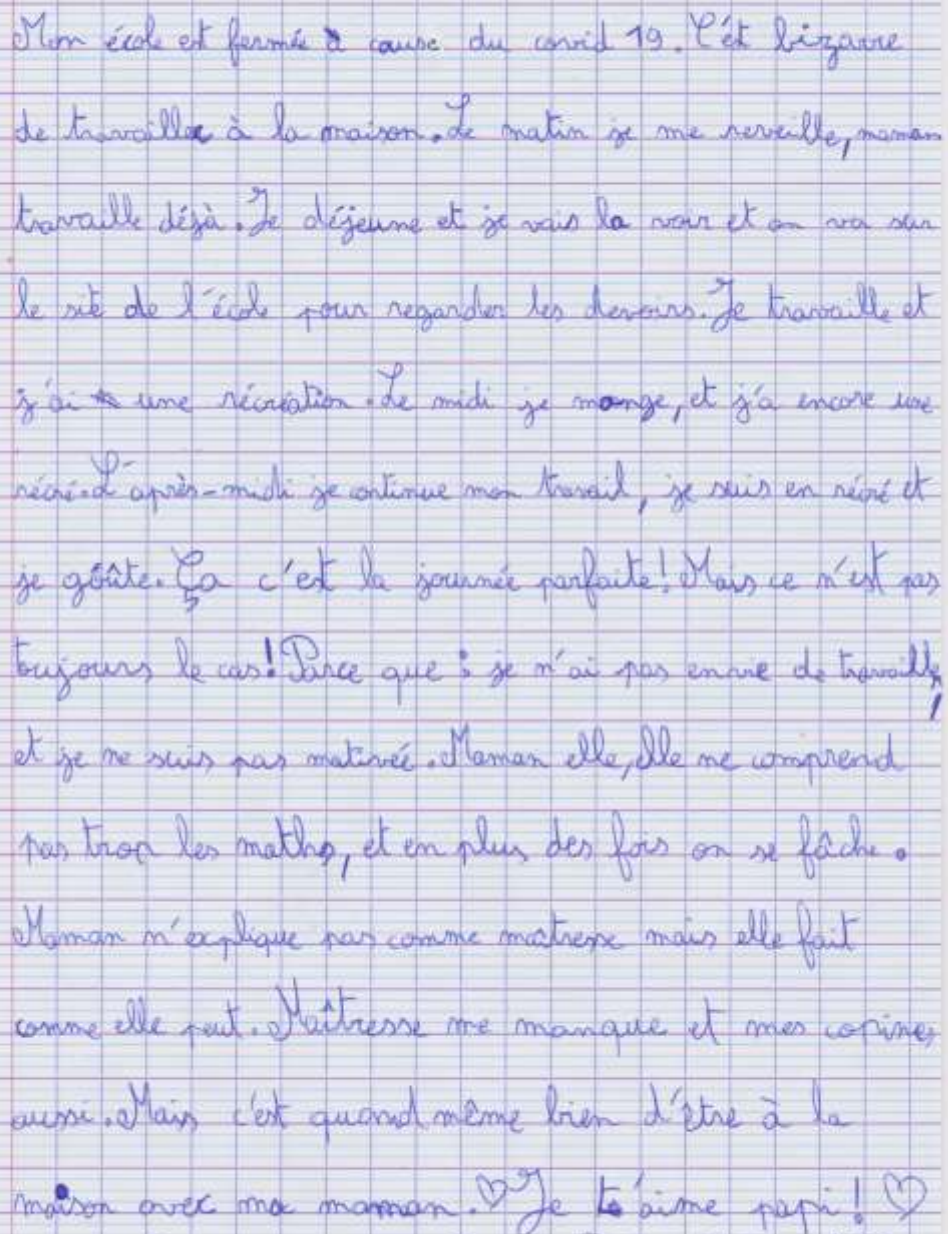 Mon école est fermée à cause du covid 19. C'ét bizarre
de travailler à la maison. Le matin je me reveille, maman
travaille déjà. Je déjeune et je vais la voir et on va sur
le site de l'école pour regarder les devoirs. Je travaille et
j'ai une récréation. Le midi je mange, et j'a encore une
récré. L'après-midi je continue mon travail, je suis en récré et
je goûte. Ça c'est la journée parfaite! Mais ce n'est pas
toujours le cas! Parce que : je n'ai pas envie de travaille,
et je ne suis pas motiveé. Maman elle, elle ne comprend
pas trop les maths, et en plus des fois on se fâche.
Maman n'explique pas comme maîtresse mais elle fait
comme elle peut. Maîtresse me manque et mes copines
aussi. Mais c'est quand même bien d'être à la
maison avec ma maman. ♡ Je t'aime papi! ♡